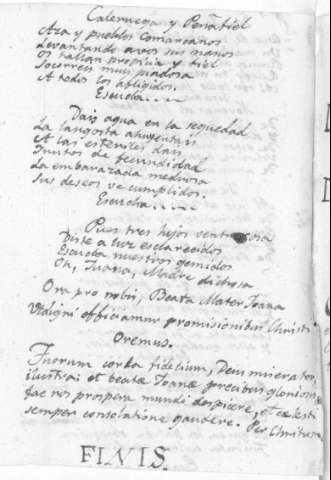 Caleruega y Peñafiel
Aza y pueblos comarcanos
Levantando a vos sus manos
Os hallan propicia y fiel
Socorreis muy piadosa
A todo los afligidos.
Escucha.....
Dais agua en la sequedad
La langosta ahuyentais
A las esteriles dais
Frutos de fecundidad
La embarazada medrosa
Sus deseos ve cumplidos.
Escucha.....
Pues tres hijos venturosa
Diste a luz esclarecidos
Escucha nuestros gemidos
Oh, Juana, Madre dichosa
Ora pro nobis, Beata Mater Joana
Vt digni efficiamur promisionibus Christi
Oremus.
corda fidelium, Deus miserator,
ilustra: et beatæ Joanæ precibus gloriosis
fac nos prospera mundi despicere, et cœlesti
semper consolatione gaudere. Per Christum
FINIS.